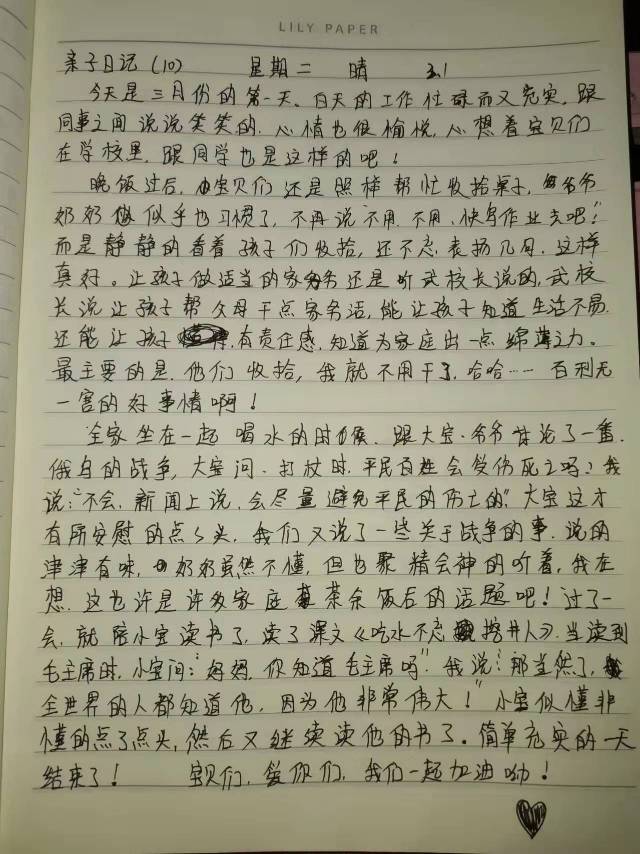 LILY PAPER
亲子日记(10) 星期二 晴 3.1
今天是三月份的第一天。白天的工作忙碌而又充实。跟
同事之间说说笑笑的.心情也很愉悦.心想着宝贝们
在学校里.跟同学也是这样的吧!
晚饭过后.宝贝们还是照样帮忙收拾桌子,爷爷
奶奶似乎也习惯了,不再说"不用.不用,快写作业去吧!"
而是静静的看着孩子们收拾,还不忘表扬几句.这样
真好。让孩子做适当的家务还是听武校长说的,武校
长说让孩子帮父母干点家务活,能让孩子知道生活不易.
还能让孩子有责任感.知道为家庭出一点绵薄之力。
最主要的是.他们收拾,我就不用干了.哈哈……百利无
一害的好事情啊!
全家坐在一起喝水的时候.跟大宝.爷爷讨论了一番.
俄乌的战争,大宝问.打杖时.平民百姓会受伤死亡吗?我
说:"不会.新闻上说.会尽量避免平民的伤亡的".大宝这才
有所安慰的点点头,我们又说了一些关于战争的事.说的
津津有味,奶奶虽然不懂,但也聚精会神的听着,我在
想.这也许是许多家庭茶余饭后的话题吧!过了一
会.就陪小宝读书了,读了课文《吃水不忘挖井人》.当读到
毛主席时,小宝问:"妈妈,你知道毛主席吗"?我说:"那当然了,
全世界的人都知道他,因为他非常伟大!"小宝似懂非
懂的点了点头,然后又继续读他的书了。简单充实的一天
结束了! 宝贝们,爱你们,我们一起加油呦!